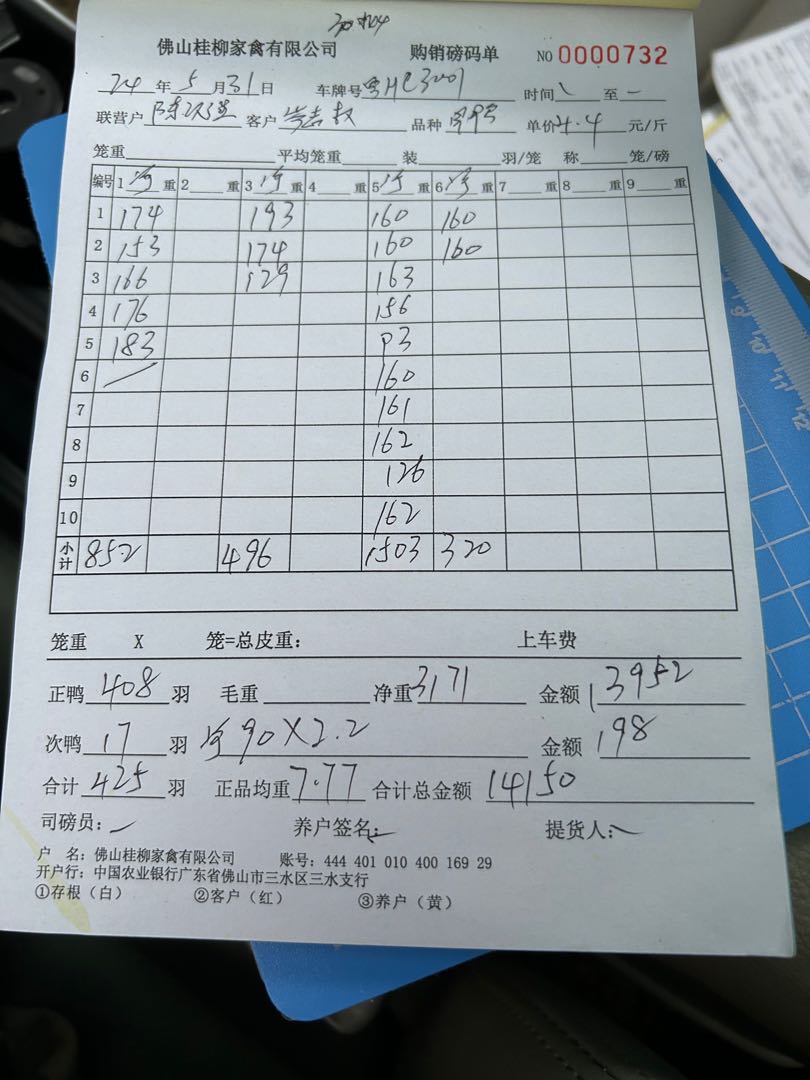 佛山桂柳家禽有限公司 购销磅码单 NO 0000732
24 年 5 月 31 日 车牌号 粤HC3001 时间 至
联营户 客户 品种 单价 4.4 元/斤
笼重 平均笼重 装 羽/笼 称 笼/磅
编号 1 净 重 2 重 3 净 重 4 重 5 净 重 6 净 重 7 重 8 重 9 重
1 174 193 160 160
2 153 174 160 160
3 166 129 163
4 176 156
5 183
6 160
7 161
8 162
9 126
10 162
小计 852 496 1503 320
笼重 X 笼=总皮重: 上车费
正鸭 408 羽 毛重 净重 3171 金额 13952
次鸭 17 羽 净 90X2.2 金额 198
合计 425 羽 正品均重 7.77 合计总金额 14150
司磅员: 养户签名: 提货人:
户 名: 佛山桂柳家禽有限公司 账号: 444 401 010 400 169 29
开户行: 中国农业银行广东省佛山市三水区三水支行
①存根(白) ②客户(红) ③养户(黄)